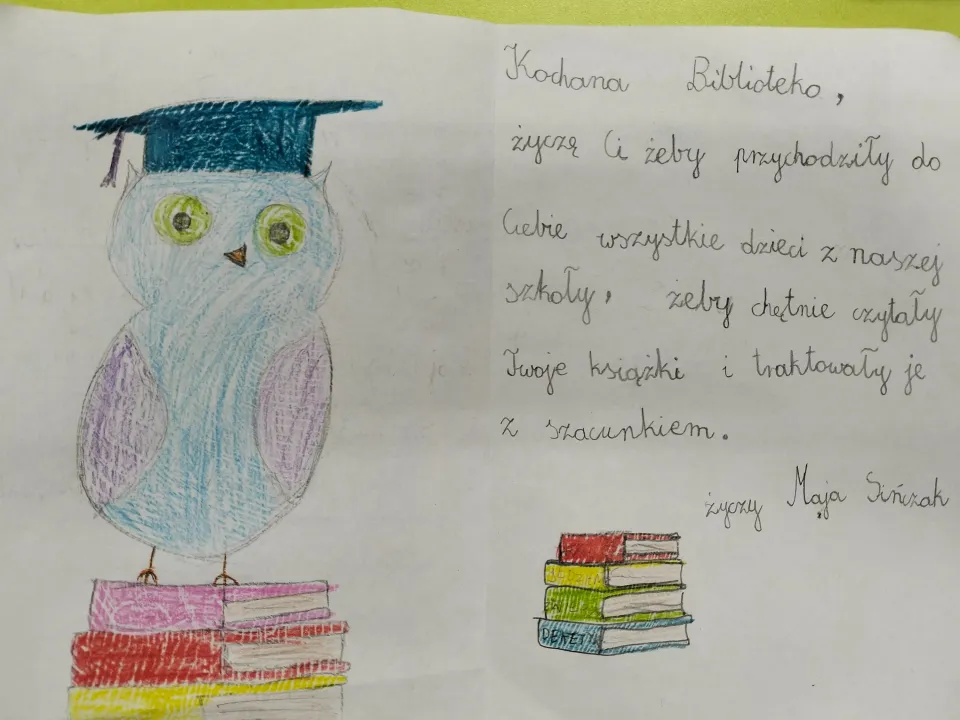 Kochana Biblioteko,
życzę Ci żeby przychodziły do
Ciebie wszystkie dzieci z naszej
szkoły, żeby chętnie czytały
Twoje książki i traktowały je
z szacunkiem.
życzy Maja Sińczak